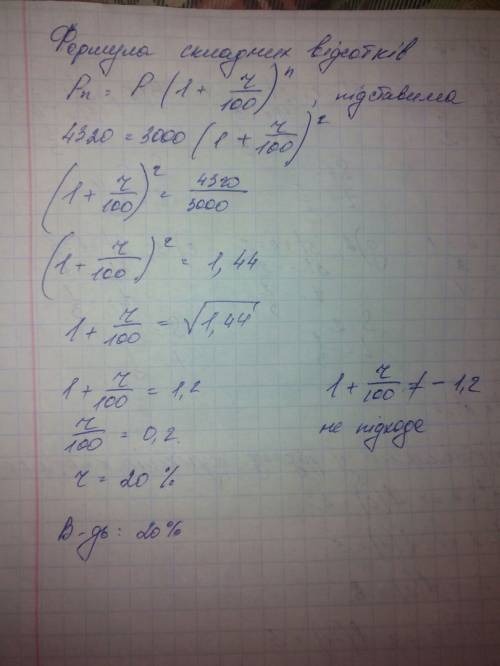 Формула складних відсотків
Pn = P (1 + r/100)^n , підставимо
4320 = 3000 (1 + r/100)^2
(1 + r/100)^2 = 4320/3000
(1 + r/100)^2 = 1,44
1 + r/100 = √1,44
1 + r/100 = 1,2 1 + r/100 ≠ - 1,2
r/100 = 0,2 не підходе
r = 20 %
В-дь: 20%